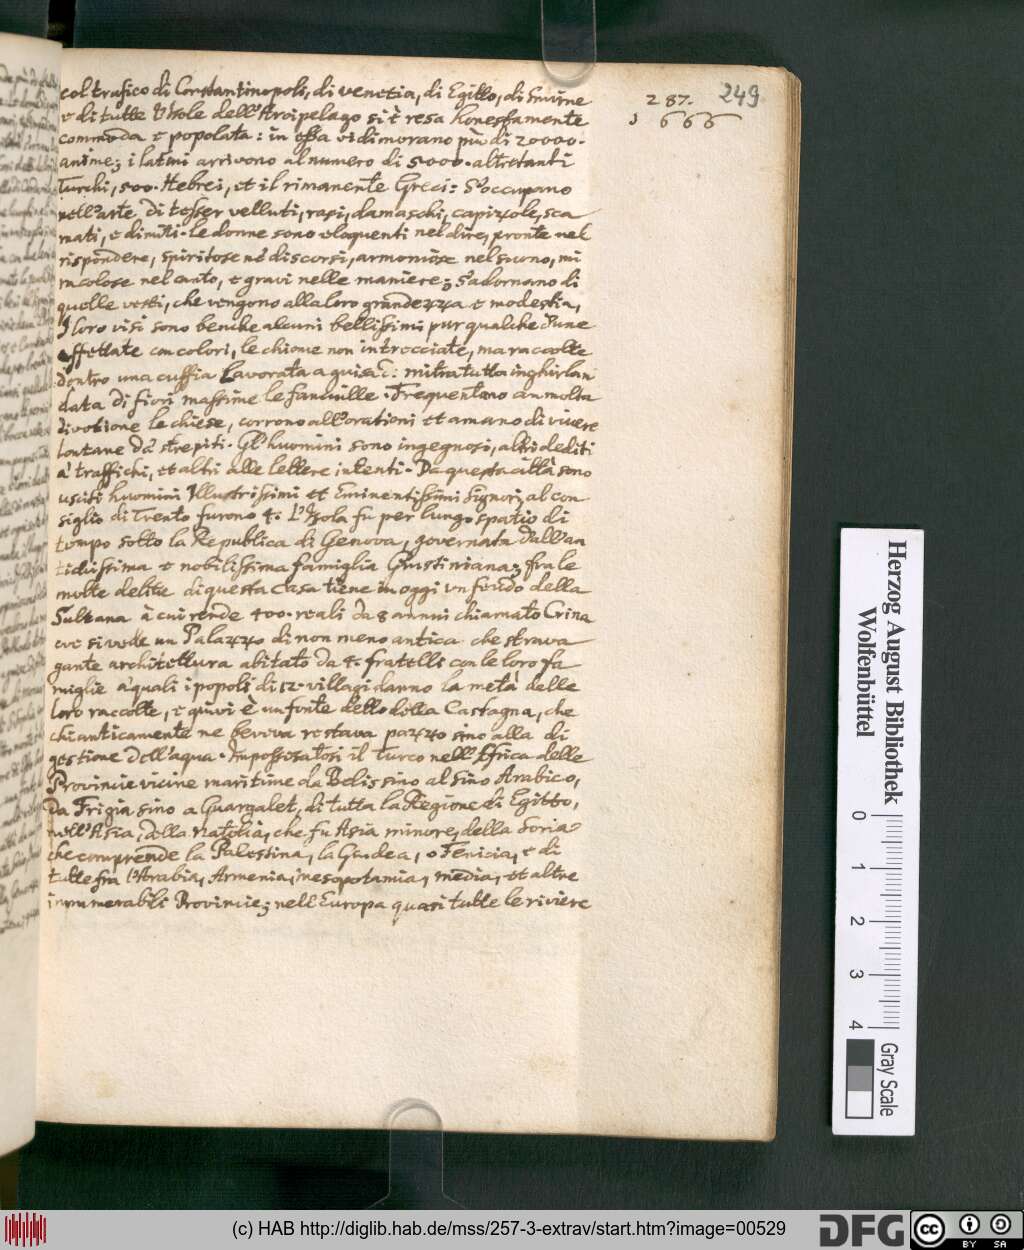 287. 249
1666
col trafico di Constantinopoli, di venetia, di Egitto, di Smirne
e di tutte l'Isole dell'Arcipelago si è resa honestamente
commoda e popolata: in essa vi dimorano più di 20000.
anime; i latini arrivono al numero di 5000. altretanti
Turchi, 500. Hebrei, et il rimanente Greci: S'occupano
nell'arte di tesser velluti, rasi, damaschi, capizzole, sca
mati, e dimiti. le donne sono eloquenti nel dire, pronte nel
rispondere, spiritose ne discorsi, armoniose nel suono, mi
racolose nel canto, e gravi nelle maniere; S'adornano di
quelle vesti, che vengono alla loro grandezza e modestia,
I loro visi sono benche alcuni bellissimi pur qualche d'une
affettate con colori, le chiome non intrecciate, ma raccolte
dentro una cuffia Lavorata a guisa di mitra tutta inghirlan
data di fiori massime le fanciulle. Frequentano con molta
divotione le chiese, corrono all'orationi et amano di vivere
lontane da strepiti. Gl'huomini sono ingegnosi, altri dediti
a traffichi, et altri alle lettere intenti. Da questa città sono
usciti huomini Illustrissimi et Eminentissimi signori, al con
siglio di Trento furono 4. L'Isola fu per lungo spatio di
tempo sotto la Republica di Genova, governata dall'an
tichissima e nobilissima famiglia Giustiniana; fra le
molte delitie di questa casa tiene in oggi un feudo della
Sultana à cui rende 400. reali da 8 annui chiamato Crina
ove si vede un Palazzo di non meno antica che strava
gante architettura abitato da 4. fratelli con le loro fa
miglie a quali i popoli di 12. villagi danno la metà delle
loro raccolte, e quivi è un fonte detto della Castagna, che
chi anticamente ne beveva restava pazzo sino alla di
gestione dell'aqua. Impossesatosi il Turco nell'Africa delle
Provincie vicine maritime da Belis sino al sino Arabico,
Da Frigia sino a Guargalet, di tutta la Regione di Egitto,
nell'Asia, della Natolia, che fu Asia minore, della Soria
che comprende la Palestina, la Giudea, o Fenicia, e di
tutte fra l'Arabia, Armenia, mesopotamia, media, et altre
innumerabili Provincie; nell'Europa quasi tutte le riviere
Herzog August Bibliothek
Wolfenbüttel
0 1 2 3 4
Gray Scale
(c) HAB http://diglib.hab.de/mss/257-3-extrav/start.htm?image=00529
DFG
cc BY SA